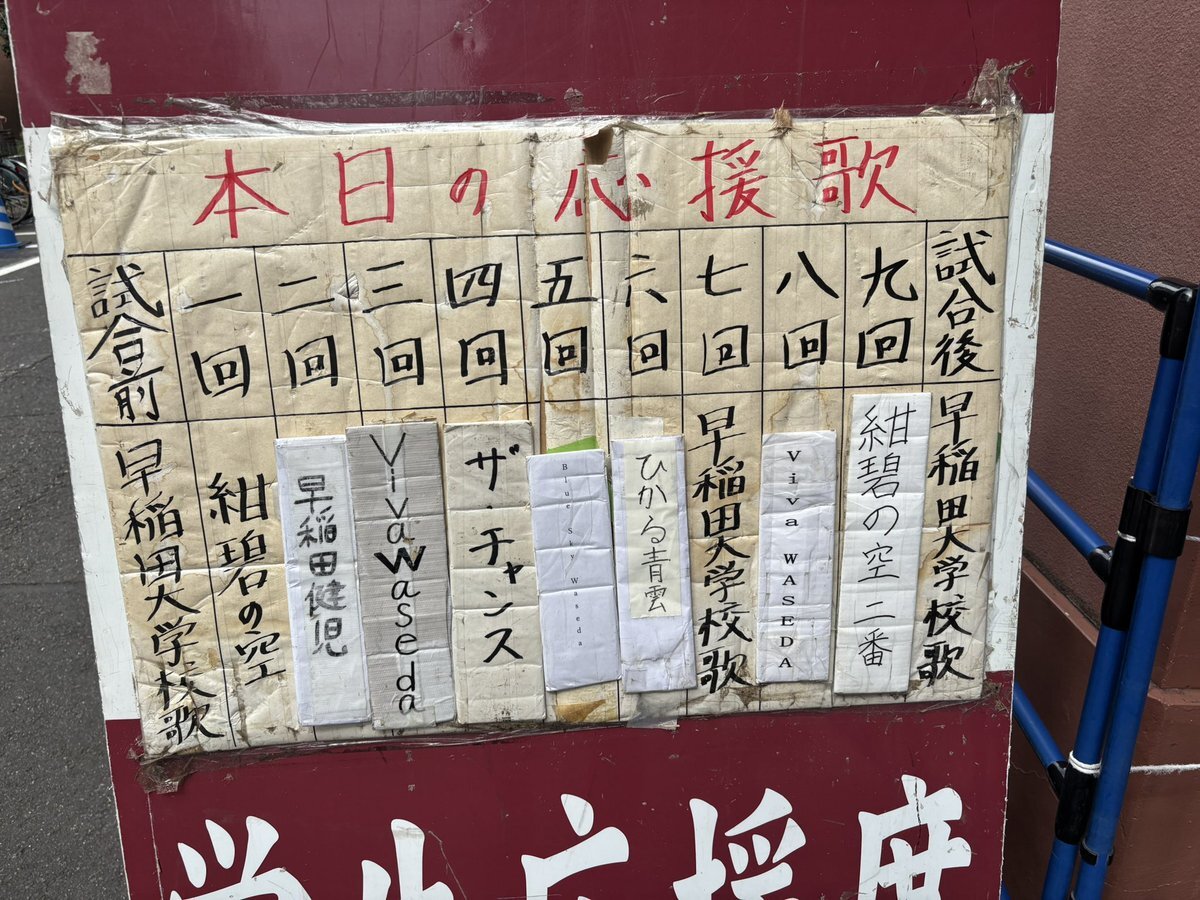 本日の応援歌
試合前
一回
二回
三回
四回
五回
六回
七回
八回
九回
試合後
早稲田大学校歌
紺碧の空
早稲田健児
Viva Waseda
ザ・チャンス
Blue Sky Waseda
ひかる青雲
早稲田大学校歌
Viva WASEDA
紺碧の空 二番
早稲田大学校歌
学生応援席